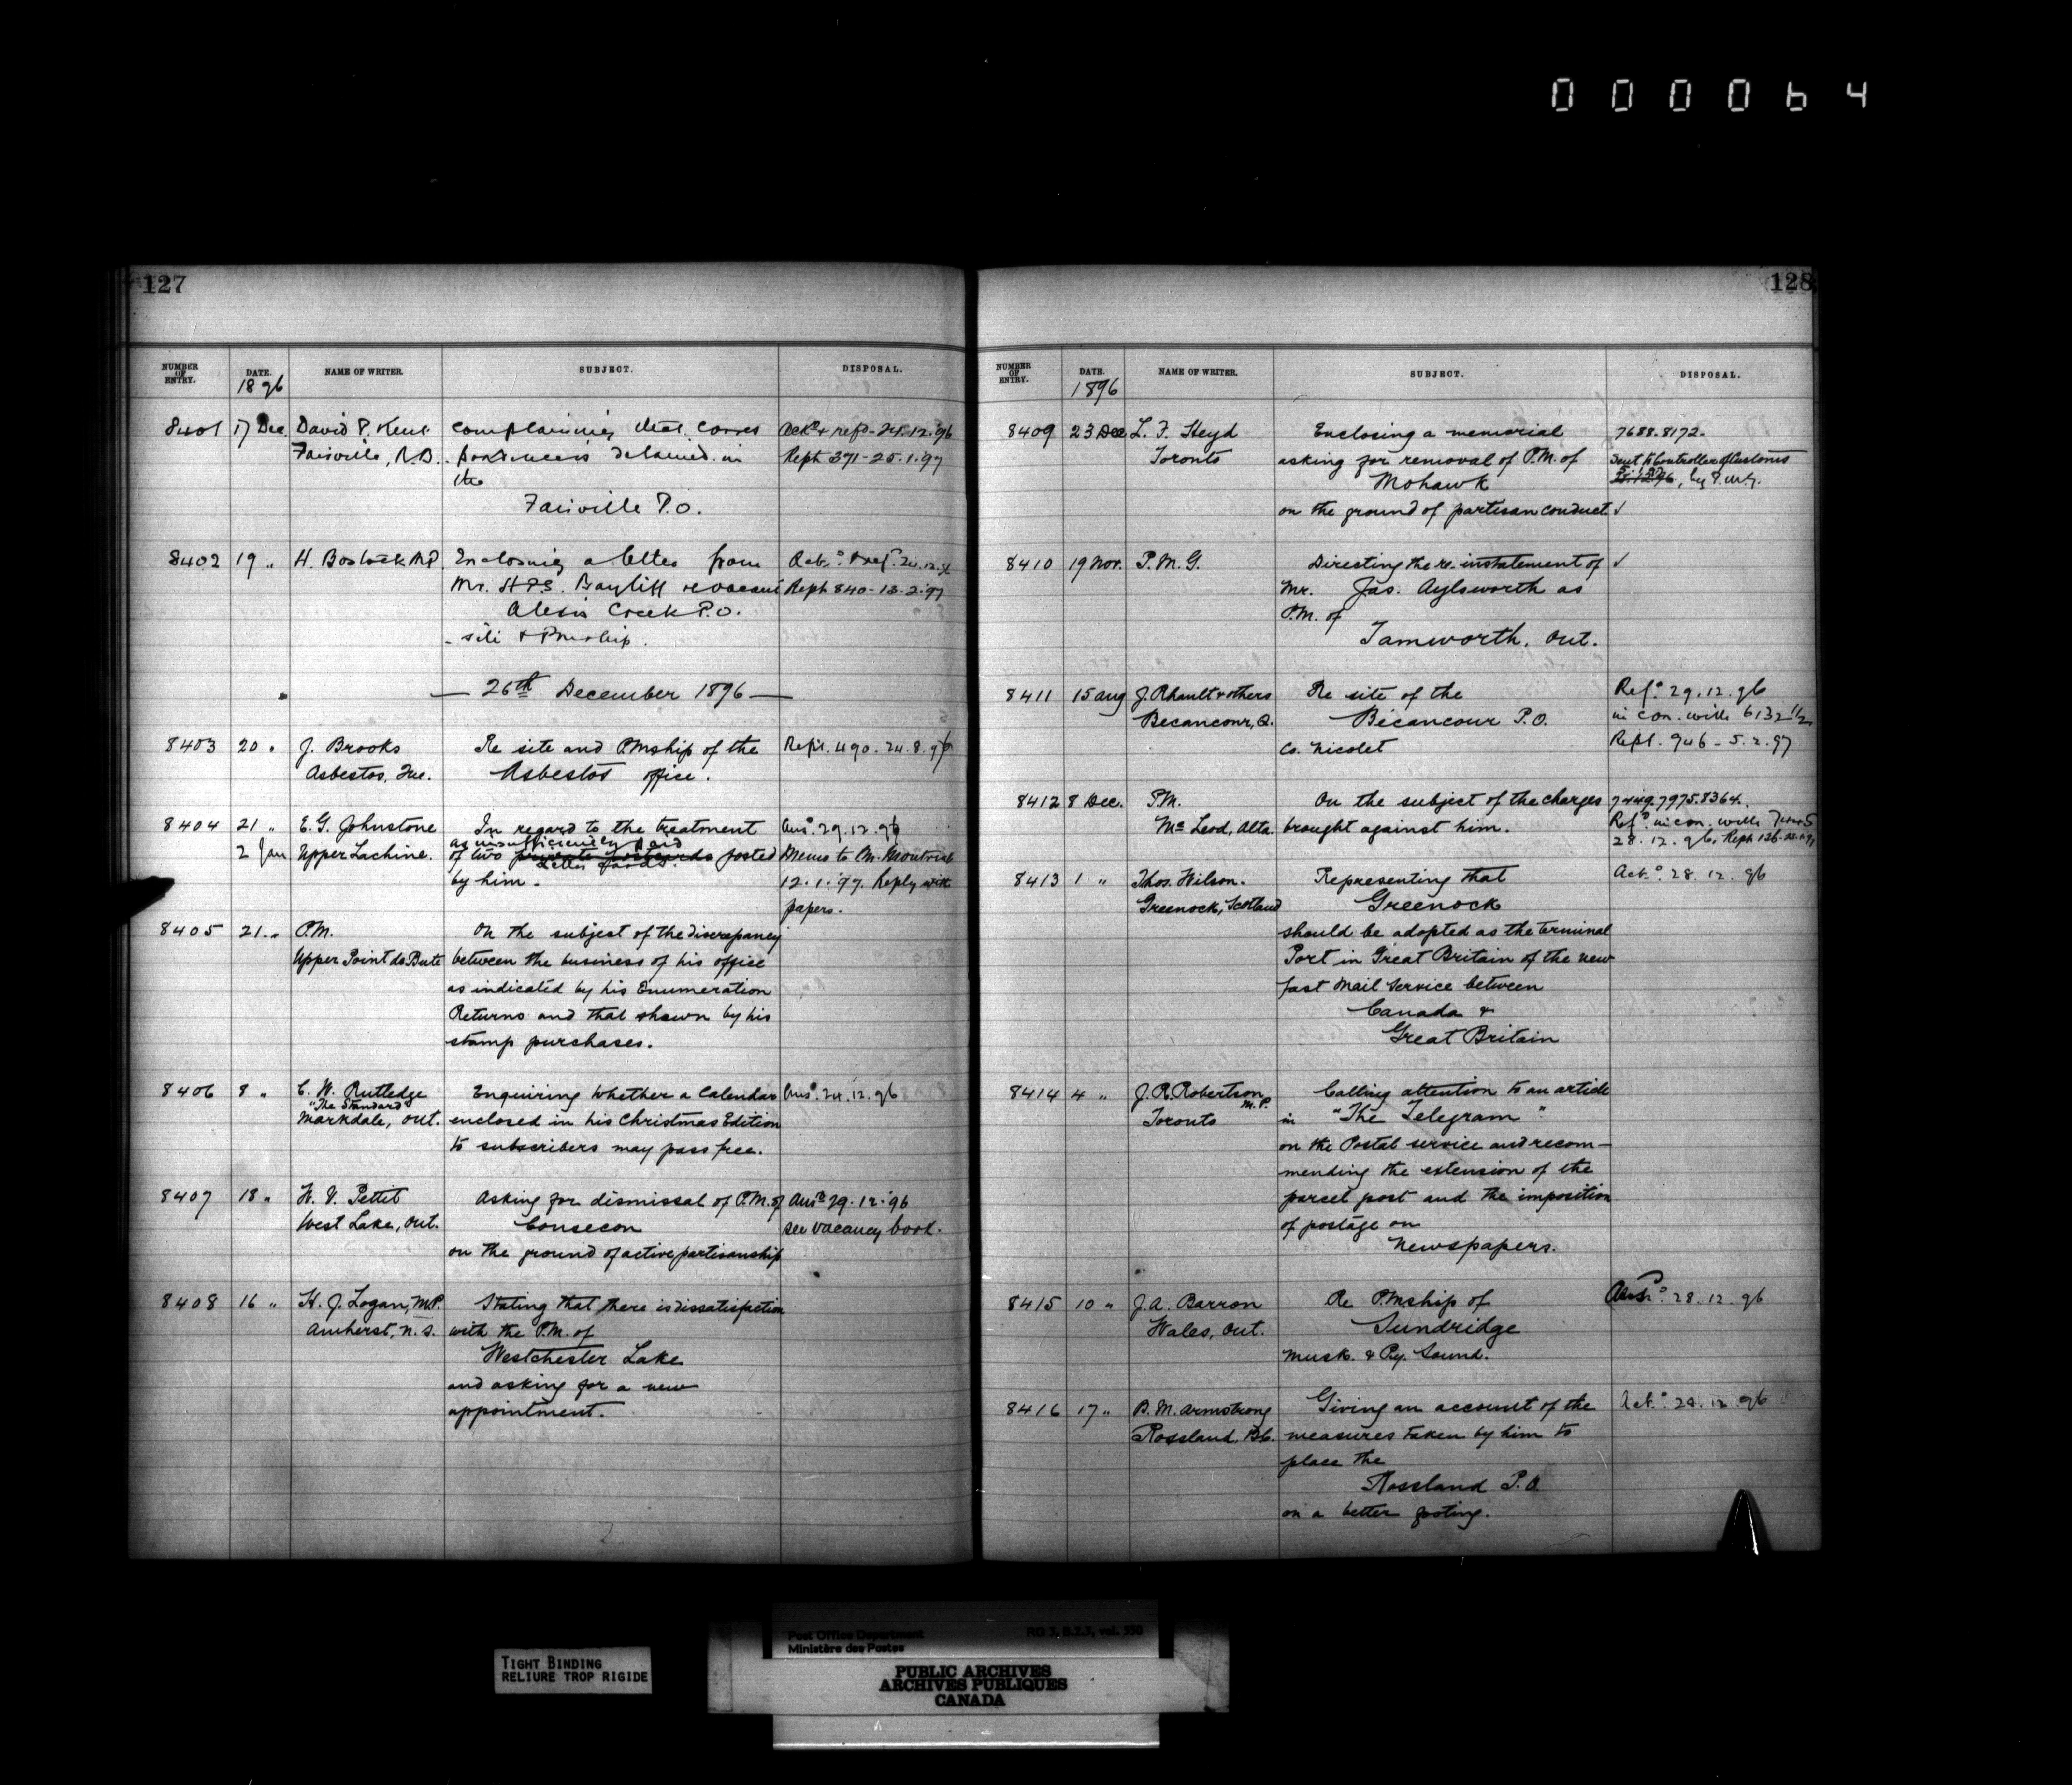 000064
127
NUMBER OF ENTRY. DATE. NAME OF WRITER. SUBJECT. DISPOSAL.
1896
8401 17 Dec. David P. Kent complaining that corres Ack.d & ref.d - 24.12.96
Fairville, N.B. pondence is detained in Rept 371 - 25.1.97
the
Fairville P.O.
8402 19 " H. Bostock M.P. Enclosing a letter from Ack.d & ref.d 24.12.96
Mr. H.P.S. Bayliff re vacant Rept 840 - 13.2.97
Alexis Creek P.O.
- site & P.M.ship.
— 26th December 1896 —
8403 20 " J. Brooks Re site and P.M.ship of the Rept. 490 - 24.8.96
Asbestos, Que. Asbestos office.
8404 21 " E. G. Johnstone In regard to the treatment Ans.d 29.12.96
as insufficiently paid
2 Jan Upper Lachine. of two private postcards posted Memo to P.M. Montreal
Letter Cards.
by him. 12.1.97. Reply with
papers.
8405 21 " P.M. On the subject of the discrepancy
Upper Point de Bute between the business of his office
as indicated by his Enumeration
Returns and that shewn by his
stamp purchases.
8406 8 " C. W. Rutledge Enquiring whether a Calendar Ans.d 24.12.96
"The Standard"
Markdale, Ont. enclosed in his Christmas Edition
to subscribers may pass free.
8407 18 " W. V. Pettit Asking for dismissal of P.M. of Ans.d 29.12.96
West Lake, Ont. Consecon see vacancy book.
on the ground of active partisanship
8408 16 " H. J. Logan, M.P. Stating that there is dissatisfaction
Amherst, N.S. with the P.M. of
Westchester Lake
and asking for a new
appointment.
128
NUMBER OF ENTRY. DATE. NAME OF WRITER. SUBJECT. DISPOSAL.
1896
8409 23 Dec L. F. Heyd Enclosing a memorial 7688.8172.
Toronto asking for removal of P.M. of Sent to Controller of Customs
Mohawk by P.M.G.
on the ground of partisan conduct. ✓
8410 19 Nov. P.M.G. Directing the re-instatement of ✓
Mr. Jas. Aylsworth as
P.M. of
Tamworth, Ont.
8411 15 Aug J. Rhault & others Re site of the Ref.d 29.12.96
Becancour, Q. Bécancour P.O. in con. with 6132 1/2
Co. Nicolet Rept. 946 - 5.2.97
8412 8 Dec. P.M. On the subject of the charges 7449.7975.8364.
McLeod, Alta. brought against him. Ref.d in con. with
28.12.96. Rept 136
8413 1 " Thos. Wilson. Representing that Ack.d 28.12.96
Greenock, Scotland Greenock
should be adopted as the terminal
Port in Great Britain of the new
fast Mail Service between
Canada &
Great Britain
8414 4 " J. R. Robertson M.P. Calling attention to an article
Toronto in "The Telegram"
on the Postal service and recom-
mending the extension of the
parcel post and the imposition
of postage on
Newspapers.
8415 10 " J. A. Barron Re P.M.ship of 28.12.96
Wales, Ont. Sundridge
Musk. & Py. Sound.
8416 17 " B. M. Armstrong Giving an account of the Ack.d 24.12.96
Rossland, B.C. measures taken by him to
place the
Rossland P.O.
on a better footing.
TIGHT BINDING
RELIURE TROP RIGIDE
Post Office Department RG 3, B.2.3, vol. 550
Ministère des Postes
PUBLIC ARCHIVES
ARCHIVES PUBLIQUES
CANADA